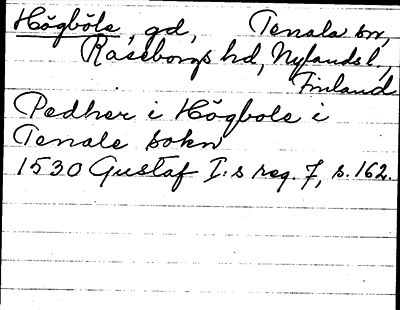 Högböle, gd, Tenala sn,
Raseborgs hd, Nylands l.,
Finland
Pedher i Högbole i
Tenale sokn
1530 Gustaf I:s reg. 7, s. 162.